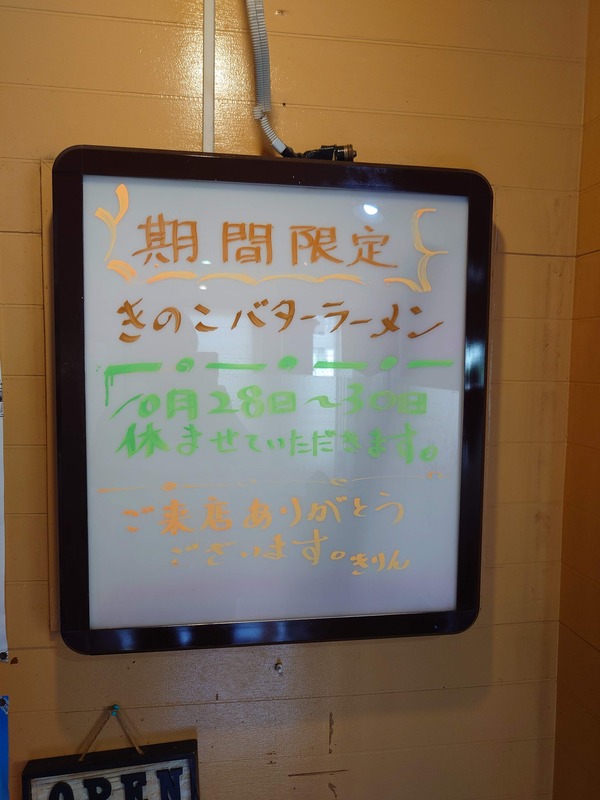 期間限定
きのこバターラーメン
10月28日~30日
休ませていただきます。
ご来店ありがとう
ございます。きりん
OPEN